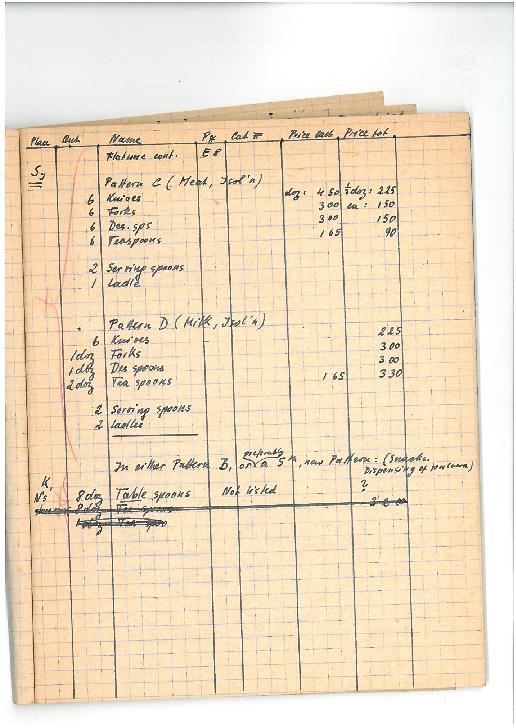 Place Qut. Name Pg Cat # Price each Price tot
Flatware cont. E8
Sy
Pattern C (Meat, Isol'n)
6 Knives doz: 4 50 ½doz: 225
6 Forks 300 ea: 150
6 Des. sps 300 150
6 Teaspoons 165 90
2 Serving spoons
1 Ladle
Pattern D (Milk, Isol'n)
6 Knives 225
1doz Forks 300
1doz Des spoons 300
2doz Tea spoons 165 330
2 Serving spoons
2 Ladles
preferably
In either Pattern B, or a 5th, new Pattern: (Snacks.
Dispensing of
K,
N's 8doz Table spoons Not listed ?
8doz Tea spoons
1doz Tea spoo